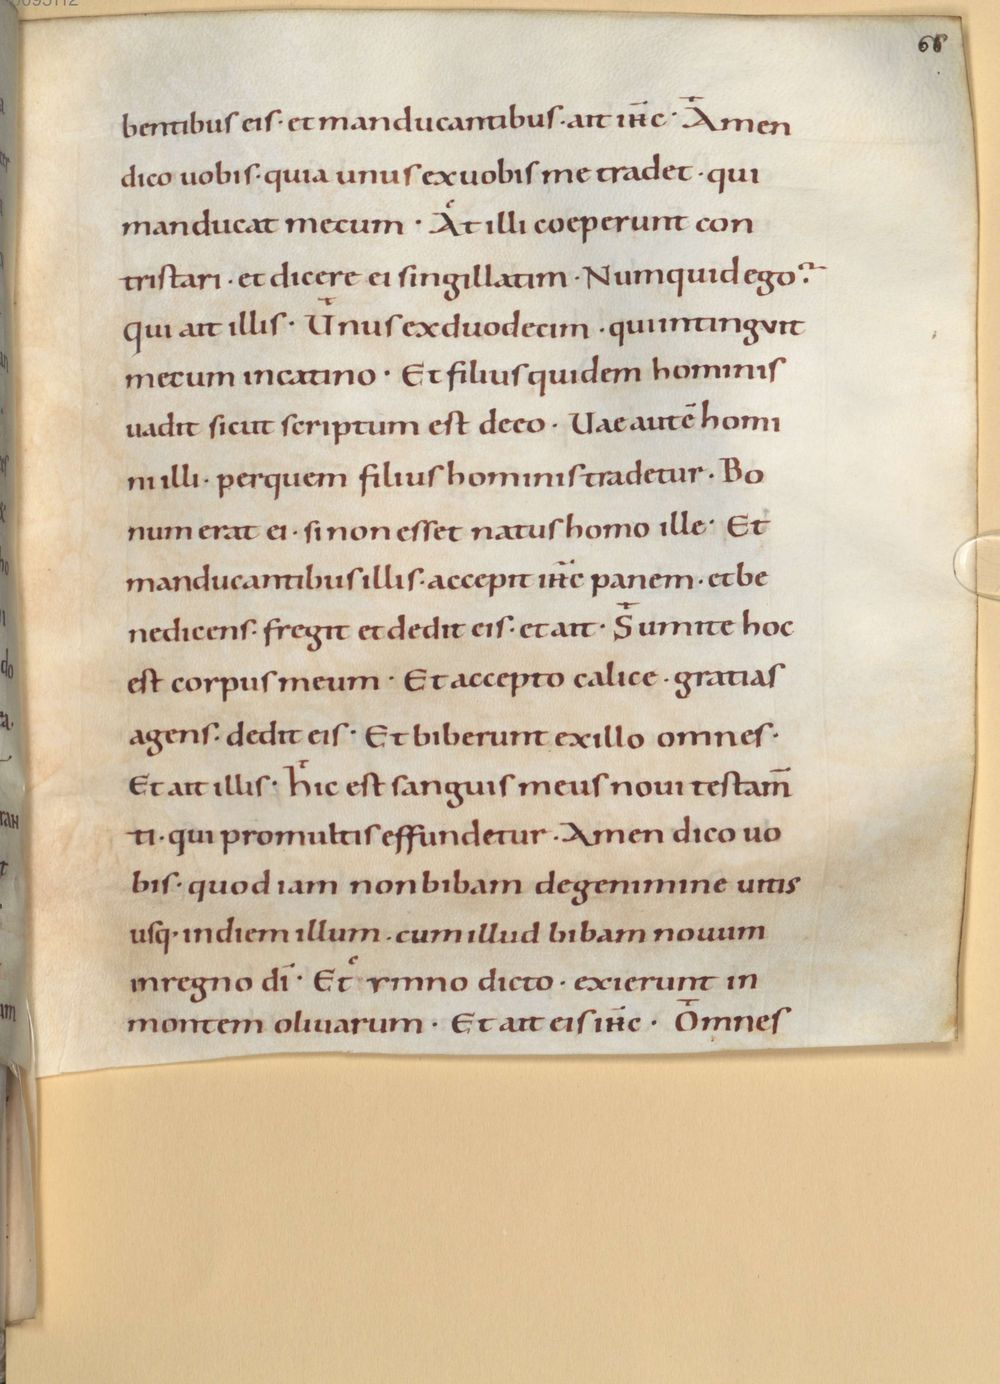 68
bentibus eis· et manducantibus· ait ihc· Amen
dico uobis· quia unus ex uobis me tradet· qui
manducat mecum· At illi coeperunt con
tristari· et dicere ei singillatim· Numquid ego?
qui ait illis· Unus ex duodecim· qui intinguit
mecum in catino· Et filius quidem hominis
uadit sicut scriptum est de eo· Uae autē homi
ni illi· per quem filius hominis tradetur· Bo
num erat ei· si non esset natus homo ille· Et
manducantibus illis· accepit ihc panem· et be
nedicens· fregit et dedit eis· et ait· Sumite hoc
est corpus meum· Et accepto calice· gratias
agens· dedit eis· Et biberunt ex illo omnes·
Et ait illis· hic est sanguis meus noui testam̄
ti· qui pro multis effundetur· Amen dico uo
bis· quod iam non bibam de genimine uitis
usq· in diem illum· cum illud bibam nouum
in regno dī· Et ymno dicto· exierunt in
montem oliuarum· Et ait eis ihc· Omnes